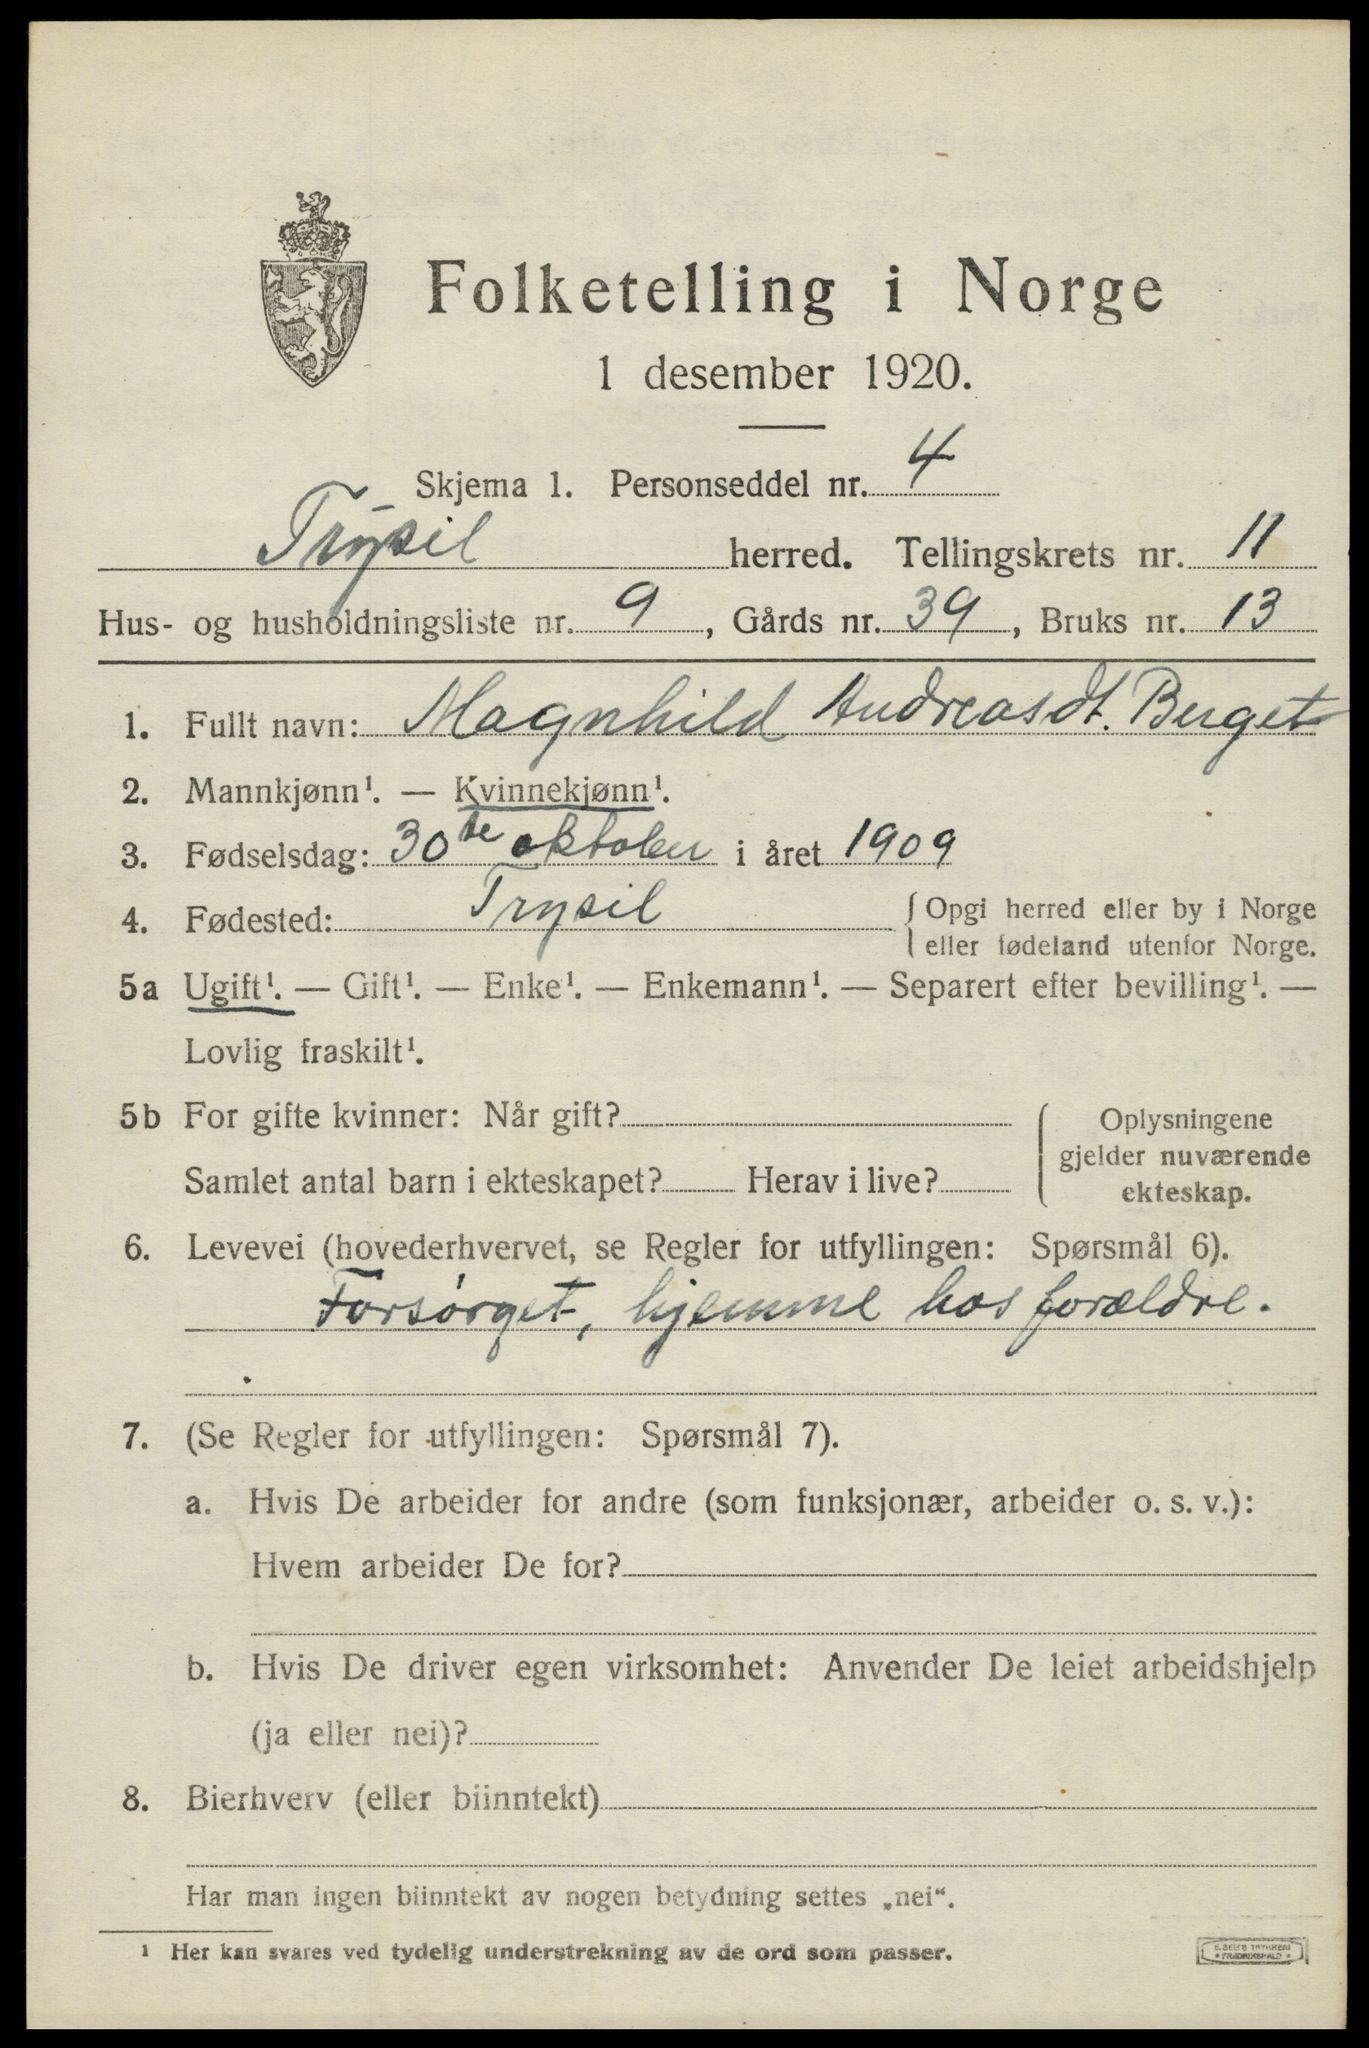 Folketelling i Norge
1 desember 1920.
Skjema 1. Personseddel nr. 4
Trysil herred. Tellingskrets nr. 11
Hus- og husholdningsliste nr. 9, Gårds nr. 39, Bruks nr. 13
1. Fullt navn: Magnhild Andreasdt. Berget
2. Mannkjønn¹. — Kvinnekjønn¹.
3. Fødselsdag: 30te oktober i året 1909
4. Fødested: Trysil { Opgi herred eller by i Norge
eller fødeland utenfor Norge.
5a Ugift¹. — Gift¹. — Enke¹. — Enkemann¹. — Separert efter bevilling¹. —
Lovlig fraskilt¹.
5b For gifte kvinner: Når gift?
Samlet antal barn i ekteskapet? Herav i live?
Oplysningene
gjelder nuværende
ekteskap.
6. Levevei (hovederhvervet, se Regler for utfyllingen: Spørsmål 6).
Forsørget, hjemme hos forældre.
7. (Se Regler for utfyllingen: Spørsmål 7).
a. Hvis De arbeider for andre (som funksjonær, arbeider o. s. v.):
Hvem arbeider De for?
b. Hvis De driver egen virksomhet: Anvender De leiet arbeidshjelp
(ja eller nei)?
8. Bierhverv (eller biinntekt)
Har man ingen biinntekt av nogen betydning settes „nei“.
¹ Her kan svares ved tydelig understrekning av de ord som passer.
TRYKKERI
FREDRIKSHALD